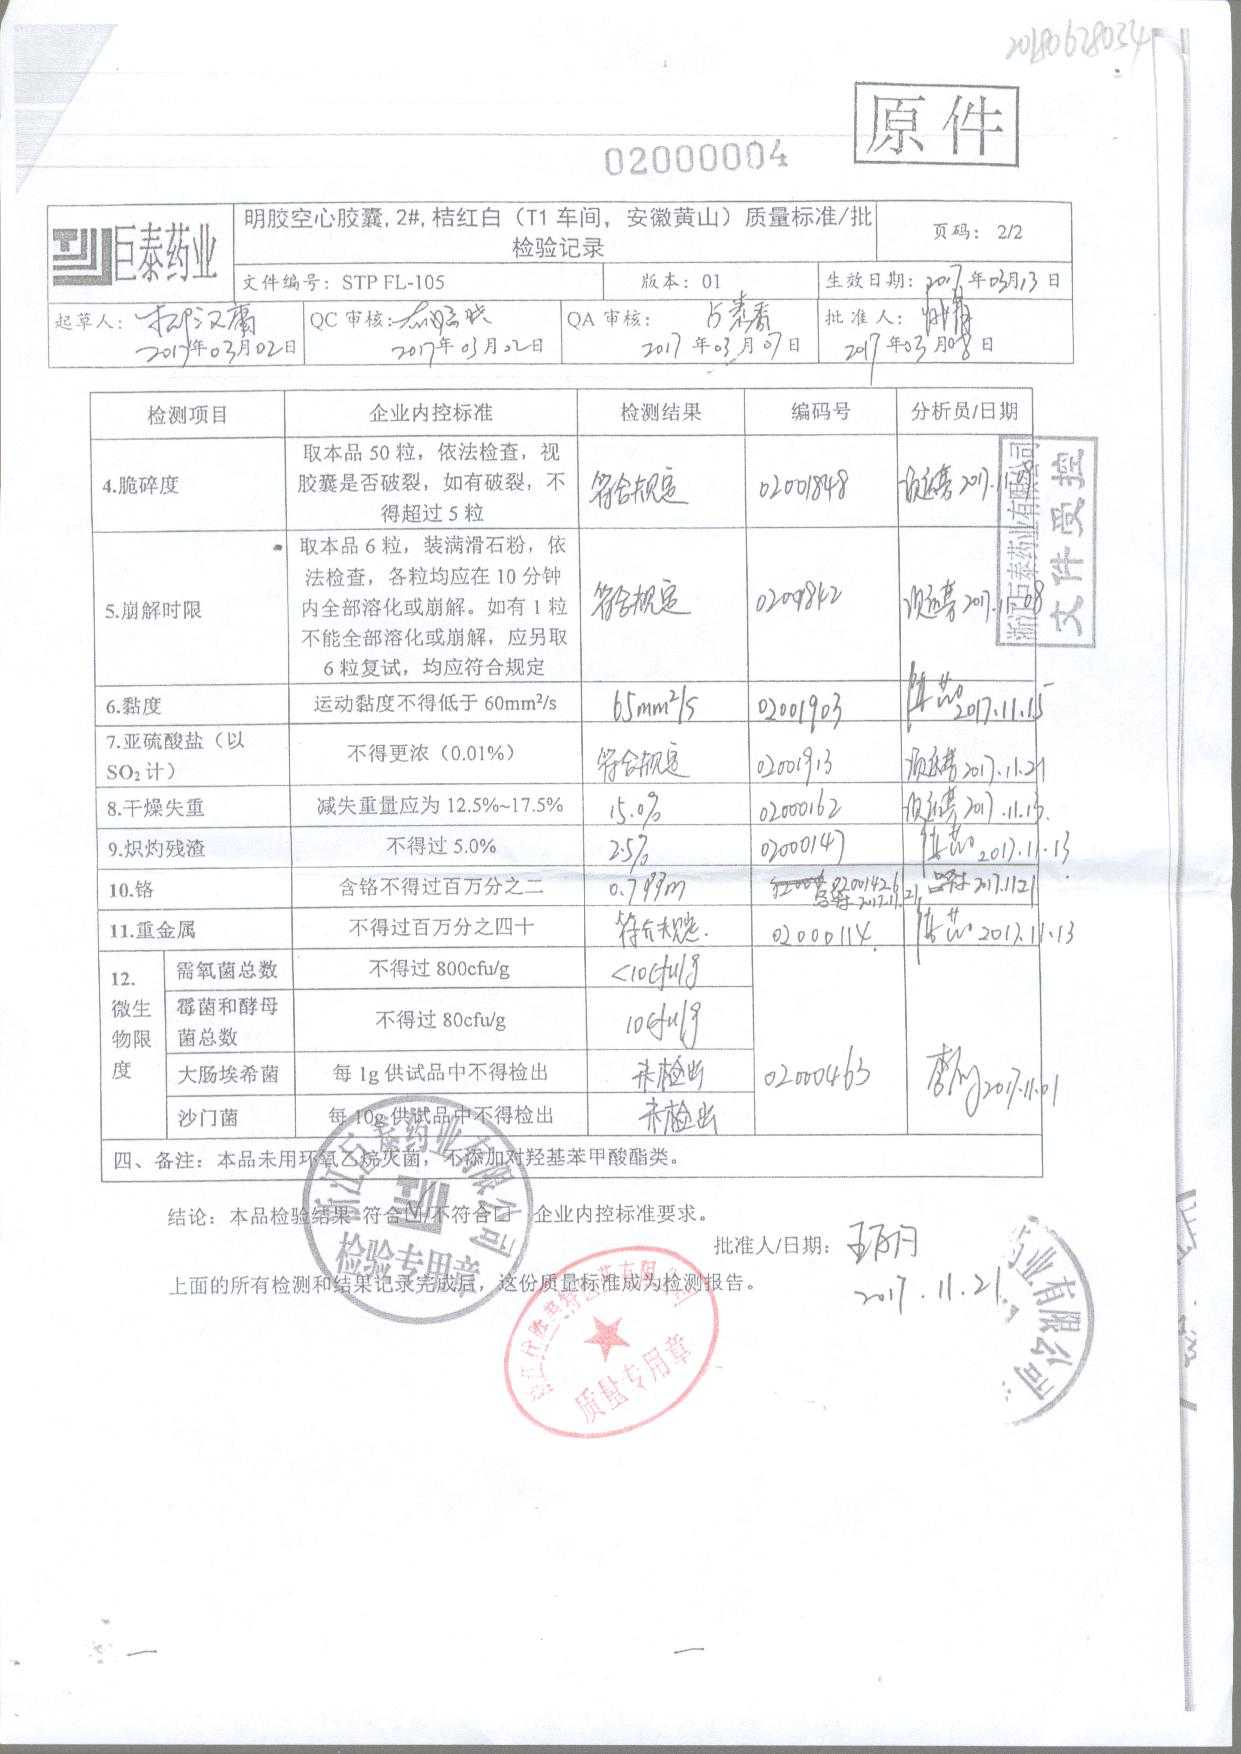 20180628034
原件
02000004
巨泰药业
明胶空心胶囊, 2#, 桔红白（T1 车间，安徽黄山）质量标准/批
检验记录
页码： 2/2
文件编号：STP FL-105
版本：01
生效日期：2017年03月13日
起草人：
2017年03月02日
QC 审核：
2017年03月02日
QA 审核：
2017年03月07日
批准人：
2017年03月08日
检测项目 企业内控标准 检测结果 编码号 分析员/日期
4.脆碎度
取本品 50 粒，依法检查，视
胶囊是否破裂，如有破裂，不
得超过 5 粒
符合规定 02001848 2017.11.08
5.崩解时限
取本品 6 粒，装满滑石粉，依
法检查，各粒均应在 10 分钟
内全部溶化或崩解。如有 1 粒
不能全部溶化或崩解，应另取
6 粒复试，均应符合规定
符合规定 2017.11.08
浙江巨泰药业有限公司
文件受控
6.黏度 运动黏度不得低于 60mm²/s 65mm²/s 02001903 2017.11.15
7.亚硫酸盐（以
SO₂计）
不得更浓（0.01%） 符合规定 02001913 2017.11.21
8.干燥失重 减失重量应为 12.5%~17.5% 15.0% 02000162 2017.11.13
9.炽灼残渣 不得过 5.0% 2.5% 02000147 2017.11.13
10.铬 含铬不得过百万分之二 2017.11.21 2017.11.21
11.重金属 不得过百万分之四十 符合规定. 02000114 2017.11.13
12.
微生
物限
度
需氧菌总数 不得过 800cfu/g <10cfu/g
霉菌和酵母
菌总数
不得过 80cfu/g 10cfu/g
大肠埃希菌 每 1g 供试品中不得检出 未检出
02000463 2017.11.01
沙门菌 每 10g 供试品中不得检出 未检出
四、备注：本品未用环氧乙烷灭菌，不添加对羟基苯甲酸酯类。
结论：本品检验结果 符合☑/不符合□ 企业内控标准要求。
批准人/日期：
2017.11.21
上面的所有检测和结果记录完成后，这份质量标准成为检测报告。
浙江巨泰药业有限公司
检验专用章
质量专用章
药业有限公司